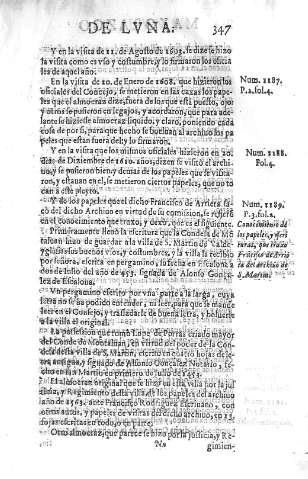 DE LVNA. 347
Y en la visita de 11. de Agosto de 1603. se dize se hizo
la visita como es vso y costumbre, y lo firmaron los oficia
les de aquel año.
Y en la visita de 20. de Enero de 1608. que hizieron los
oficiales del Concejo, se metieron en las caxas los pape
les que el almoraza dize, fuera de los que està puesto,
y otros se pusieron en legajos, y acordaron, que para ade
lante se hiziesse almoraza liquido, y claro, poniendo cada
cosa de por si, para que hecho se buelban al archivo los pa
peles que estan fuera del: y lo firmaron.
Y en la visita que los mismos oficiales hizieron en 20.
dias de Diziembre de 1610. años, dizen se visitò el archi-
vo, y se pusieron bien y demas de los papeles que se
y estauan en el, se metieron ciertos papeles, que no to
can a este pleyto.
Y de los papeles que el dicho Francisco de Arriera sa
cò del dicho Archivo en virtud de su comission, se refierè
en el conocimiento que traxo, y dellos es el siguiente.
Primeramente lleuò la escritura que la Condesa de Mõ
taluan hizo de guardar a la villa de S. Martin de Valde
yglesias sus buenos vsos, y costumbres, y la villa la recibiò
por señora, escrita en pergamino, su fecha en Escalona a
dos de Iulio del año de 453. signada de Alonso Gonça
lez de Escalona.
Vn pergamino escrito por vna parte a la larga, cuya
letra no se ha podido entender, ni leer, para que se mande
leer en el Consejo, y trasladarse de buena letra, y boluerse
a la villa el original.
La possession que tomò Lope de Porras criado mayor
del Conde de Montaluan, en virtud de poder de la Con
desa desta villa de S. Martin, escrito en quatro hojas de le
tra antigua, y signado de Alfonso Gonzalez Notario, fe-
cho en San Martin de primero de julio de 1453.
El almoraza original que se hizo en esta villa por la jus
ticia, y Regimiento desta villa, de los papeles del archivo
año de 1563. ante Francisco Rodriguez Escriuano, con
otros autos, y papeles de visitas del dicho archivo, en 13.
fojas escritas en todo, o en parte.
Otro almoraza, que parece se hizo por la justicia, y Re
Nn gimien-
Num. 1187.
P. 2. fol. 4.
Num. 1188.
Fol. 4.
Num. 1189.
P. 3. fol. 2.
Conocimiento de
los papeles, y escri
turas, que traxo
Francisco de Arrie
ra del Archivo de
S. Martin.